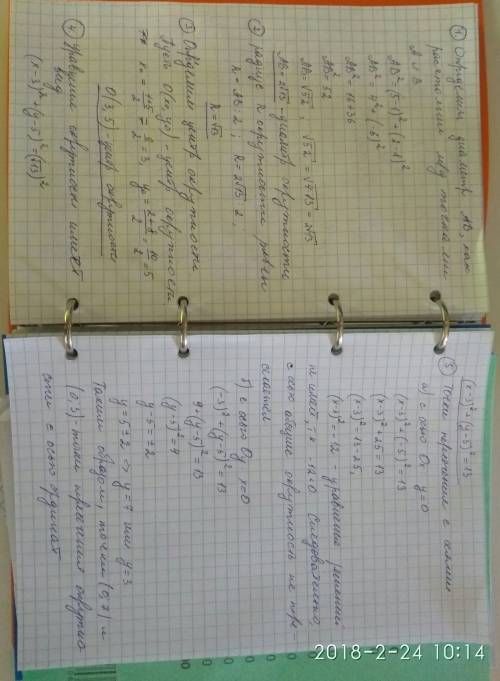 ① Определим диаметр AB, как
расстояние между точками
A и B
AB² = (5-1)² + (2-8)²
AB² = 4² + (-6)²
AB² = 16+36
AB² = 52
AB = √52, √52 = √4·13 = 2√13
AB = 2√13 - диаметр окружности
② радиус R окружности равен
R = AB:2; R = 2√13 : 2,
R = √13
③ Определим центр окружности
Пусть O(x₀, y₀) - центр окружности
x₀ = 1+5/2 = 6/2 = 3, y₀ = 2+8/2 = 10/2 = 5
O(3,5) - центр окружности
④ Уравнение окружности имеет
вид
(x-3)² + (y-5)² = (√13)²
(x-3)² + (y-5)² = 13
⑤ Точки пересечения с осями
а) с осью Ox y=0
(x-3)² + (-5)² = 13
(x-3)² + 25 = 13
(x-3)² = 13-25,
(x-3)² = -12 - уравнение решений
не имеет, т.к. -12<0 Следовательно,
с осью абсцисс окружность не пере-
секается
б) с осью Oy x=0
(-3)² + (y-5)² = 13
9 + (y-5)² = 13
(y-5)² = 4
y-5 = ±2
y = 5±2 => y=7 или y=3
Таким образом, точки (0,7) и
(0,3) - точки пересечения окружно
сти с осью ординат
2018-2-24 10:14